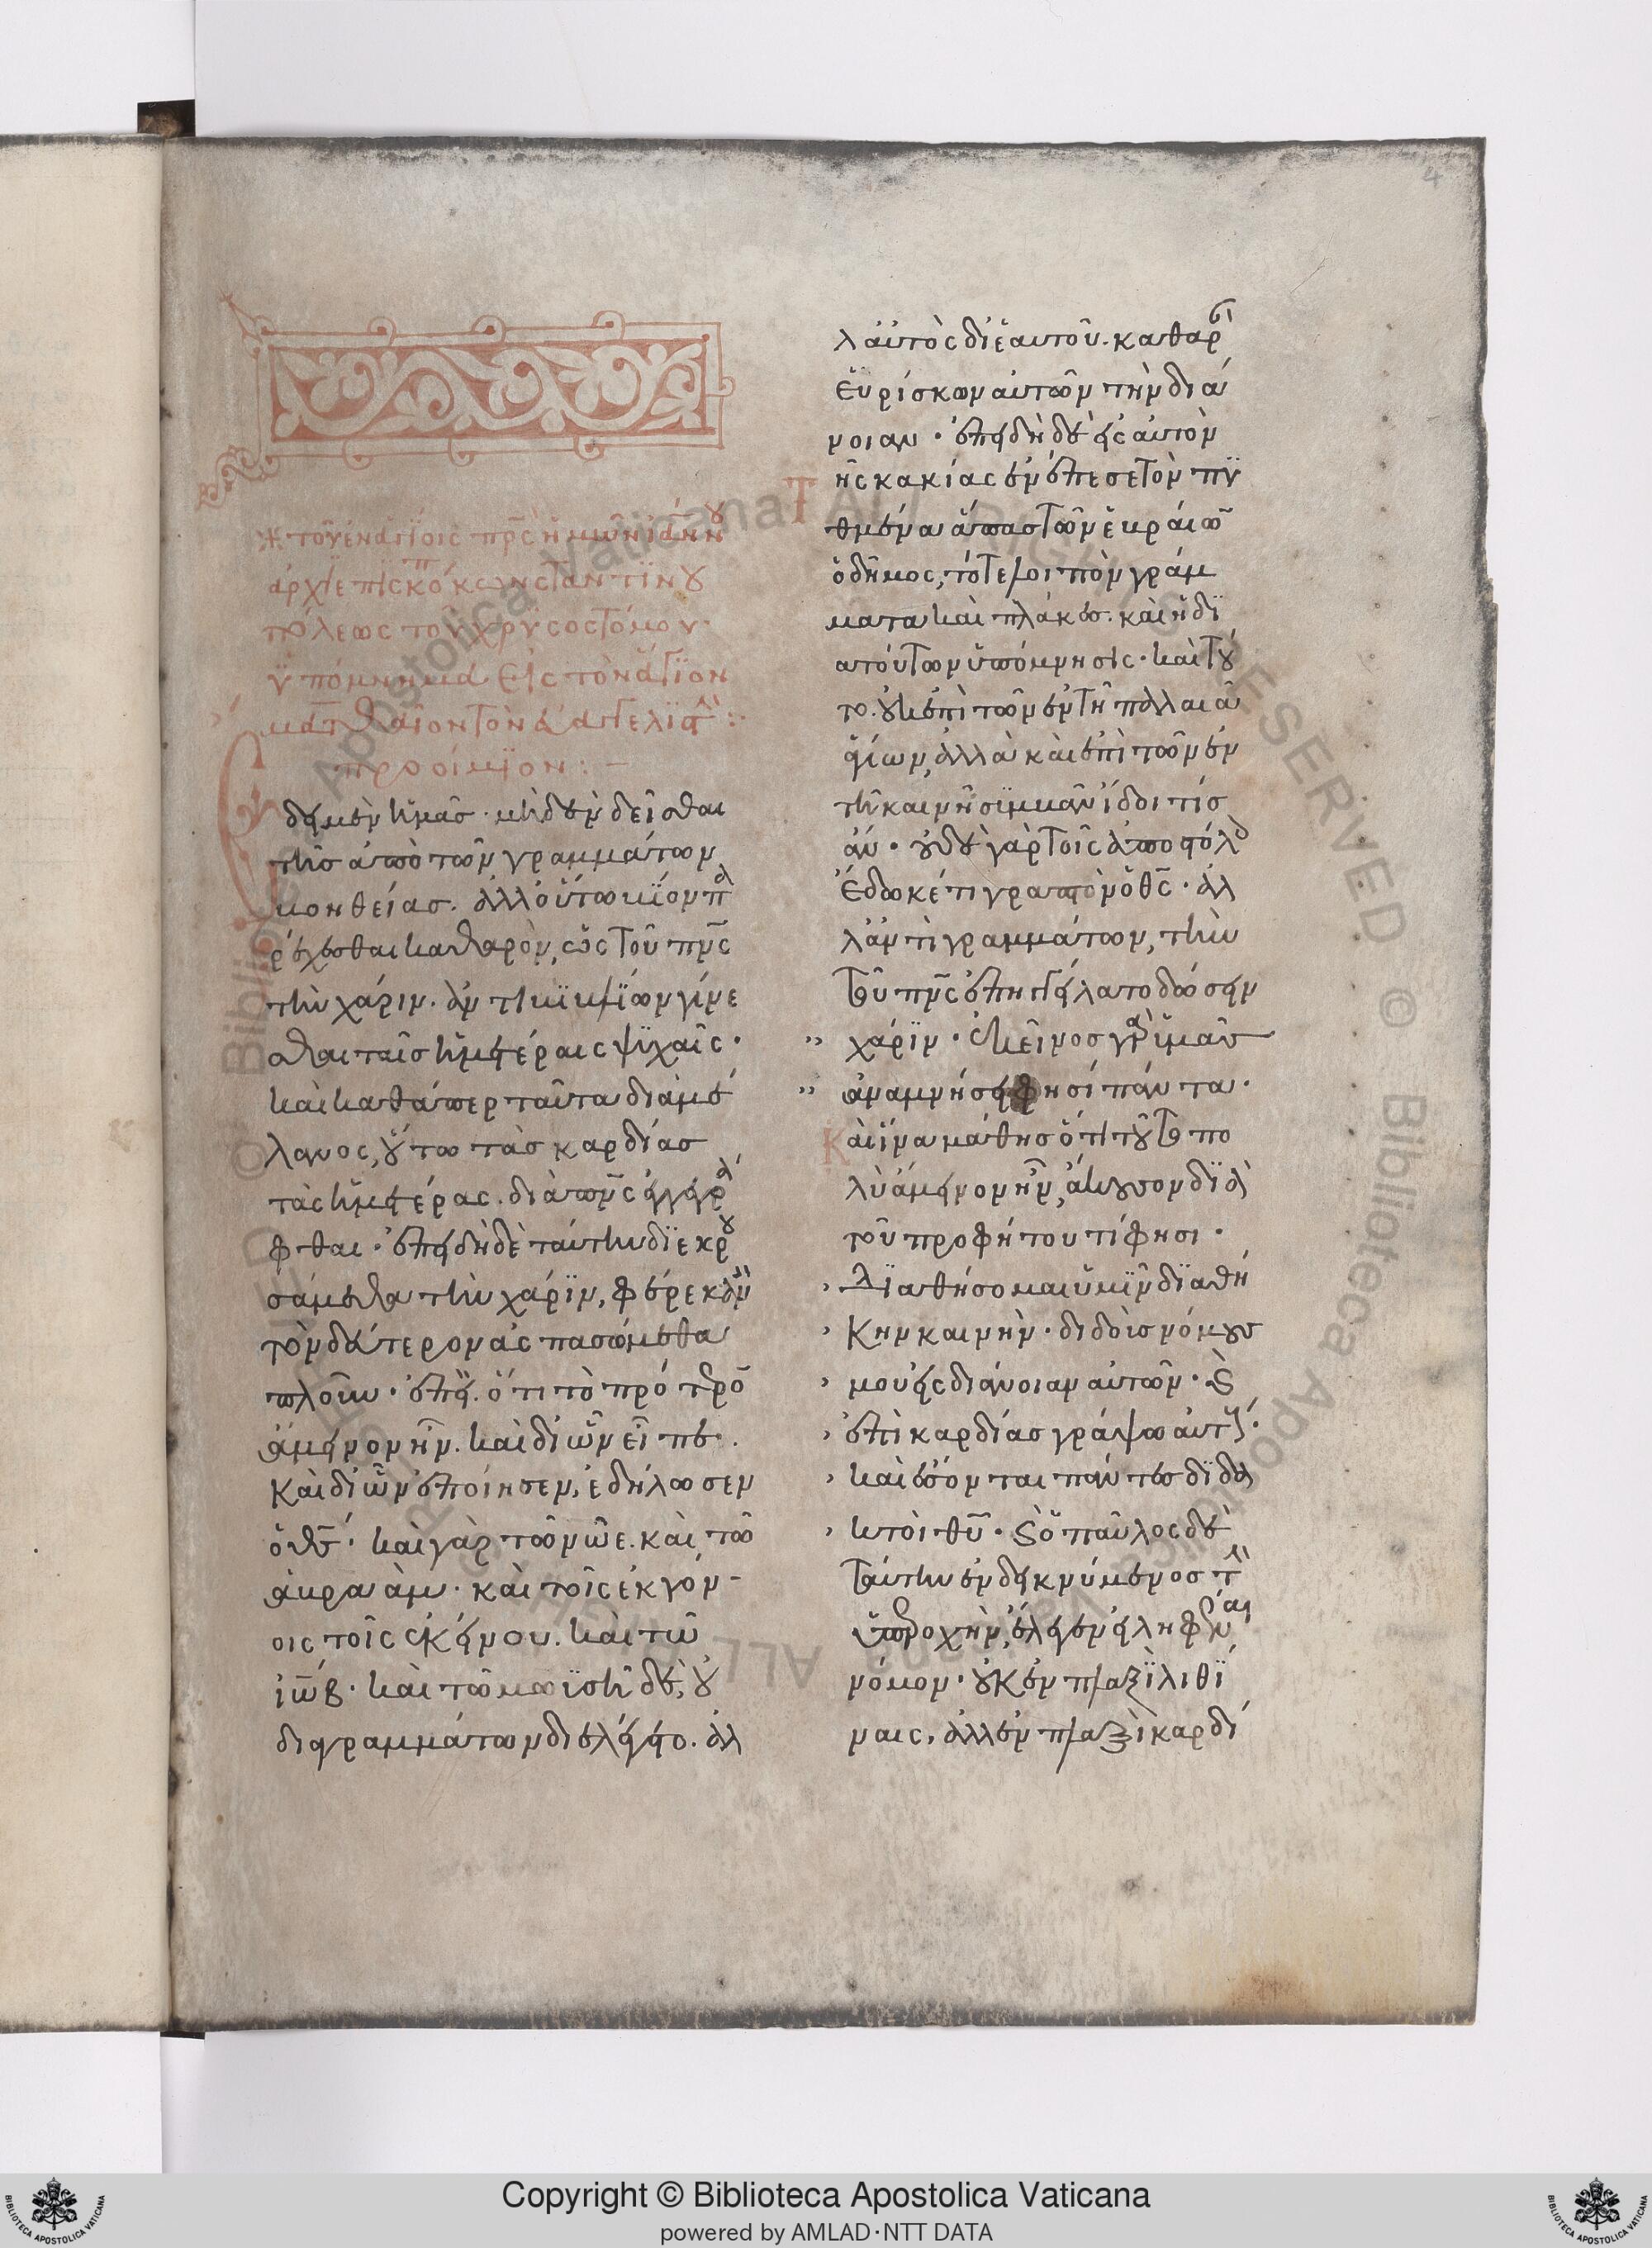 τοῦ ἐν ἁγίοις πρς ἡμῶν ἰωάνν
ἀρχιεπισκό κωνσταντινου
πόλεως τοῦ χρυσοστόμου·
ὑπόμνημα εἰς τὸν ἅγιον
ματθαῖον τὸν εὐαγγελιστ :·
προοίμϊον : —
δει μὲν ἡμᾶσ · μηδὲν δεῖσθαι
τῆσ ἀπὸ τῶν γραμμάτων
βοηθείασ. ἀλλ οὕτω βίον π
ρέχεσθαι καθαρὸν, ὡς τοῦ πνς
τὴν χάριν. ἀντὶ βιβλίων γίνε
σθαι ταῖσ ἡμετέραις ψϋχαῖς ·
καὶ καθάπερ ταῦτα διὰ μέ
λανος, οὕτω τὰσ καρδίασ
τὰς ἡμετέρας. διὰ πνς ἐγγε
φθαι · ἐπειδὴ δὲ ταύτην δϊεκρ
σάμεθα τὴν χάρϊν, φέρε κἂν
τὸν δεύτερον ἀσπασώμεθα
πλοῦν · ἐπεὶ. ὅτι τὸ πρότερο
ἄμεινον ἦν. καὶ δι ὧν εἶπε.
Καὶ δι ὧν ἐποίησεν, ἐδήλωσεν
ὁ θς · καὶ γὰρ τῶ νῶε. καὶ τῶ
ἀβραάμ · καὶ τοῖς ἐκγόν-
οις τοῖς ἐκείνου. καὶ τῶ
ἰώβ · καὶ τῶ μωϊσῆ δὲ, οὐ
διὰ γραμμάτων διελέγετο. ἀλ
λ αὐτὸς δι ἑαυτοῦ. καθαρ
εὑρίσκων αὐτῶν τὴν διά
νοιαν · ἐπειδὴ δὲ εἰς αὐτὸν
Τῆς κακίας ἐνέπεσε τὸν πυ
θμένα ἅπας τῶν ἑβραίω
ὁ δῆμος, τότε λοιπὸν γράμ
ματα καὶ πλάκεσ. καὶ ἡ δϊ
α τούτων ὑπόμνησις · καὶ τοῦ
το. οὐκ ἐπὶ τῶν ἐν τῆ παλαιᾶ
ἁγίων, ἀλλὰ καὶ ἐπὶ τῶν ἐν
τῆ καινῆ συμβὰν ἴδοι τίσ
ἄν · οὐδὲ γὰρ τοῖς ἀποστόλ
ἔδωκέ τι γραπτὸν ὁ θς · ἀλ
λ ἀντὶ γραμμάτων, τὴν
τοῦ πνς ἐπηγγείλατο δώσειν
χάρϊν · ἐκεῖνος γὰρ ὑμᾶσ
ἀναμνήσει φησὶ πάντα.
Καὶ ἵνα μάθησ ὅτι τοῦτο πο
λὺ ἄμεινον ἦν, ἄκουσον δϊὰ
τοῦ προφήτου τί φησι ·
Δϊαθήσομαι ὑμῖν δϊαθή
κην καινὴν · διδοὺσ νόμουσ
μου εἰς διάνοιαν αὐτῶν · καὶ
ἐπὶ καρδίασ γράψω αὐτούς ·
καὶ ἔσονται πάντεσ δϊδα
κτοὶ θυ · καὶ ὁ παῦλος δὲ
ταύτην ἐνδεικνύμενοσ τ
ὑπεροχὴν, ἔλεγεν εἰληφέν
νόμον · οὐκ ἐν πλαξὶ λιθί
ναις, ἀλλ ἐν πλαξὶ καρδί
4
Copyright © Biblioteca Apostolica Vaticana
powered by AMLAD·NTT DATA